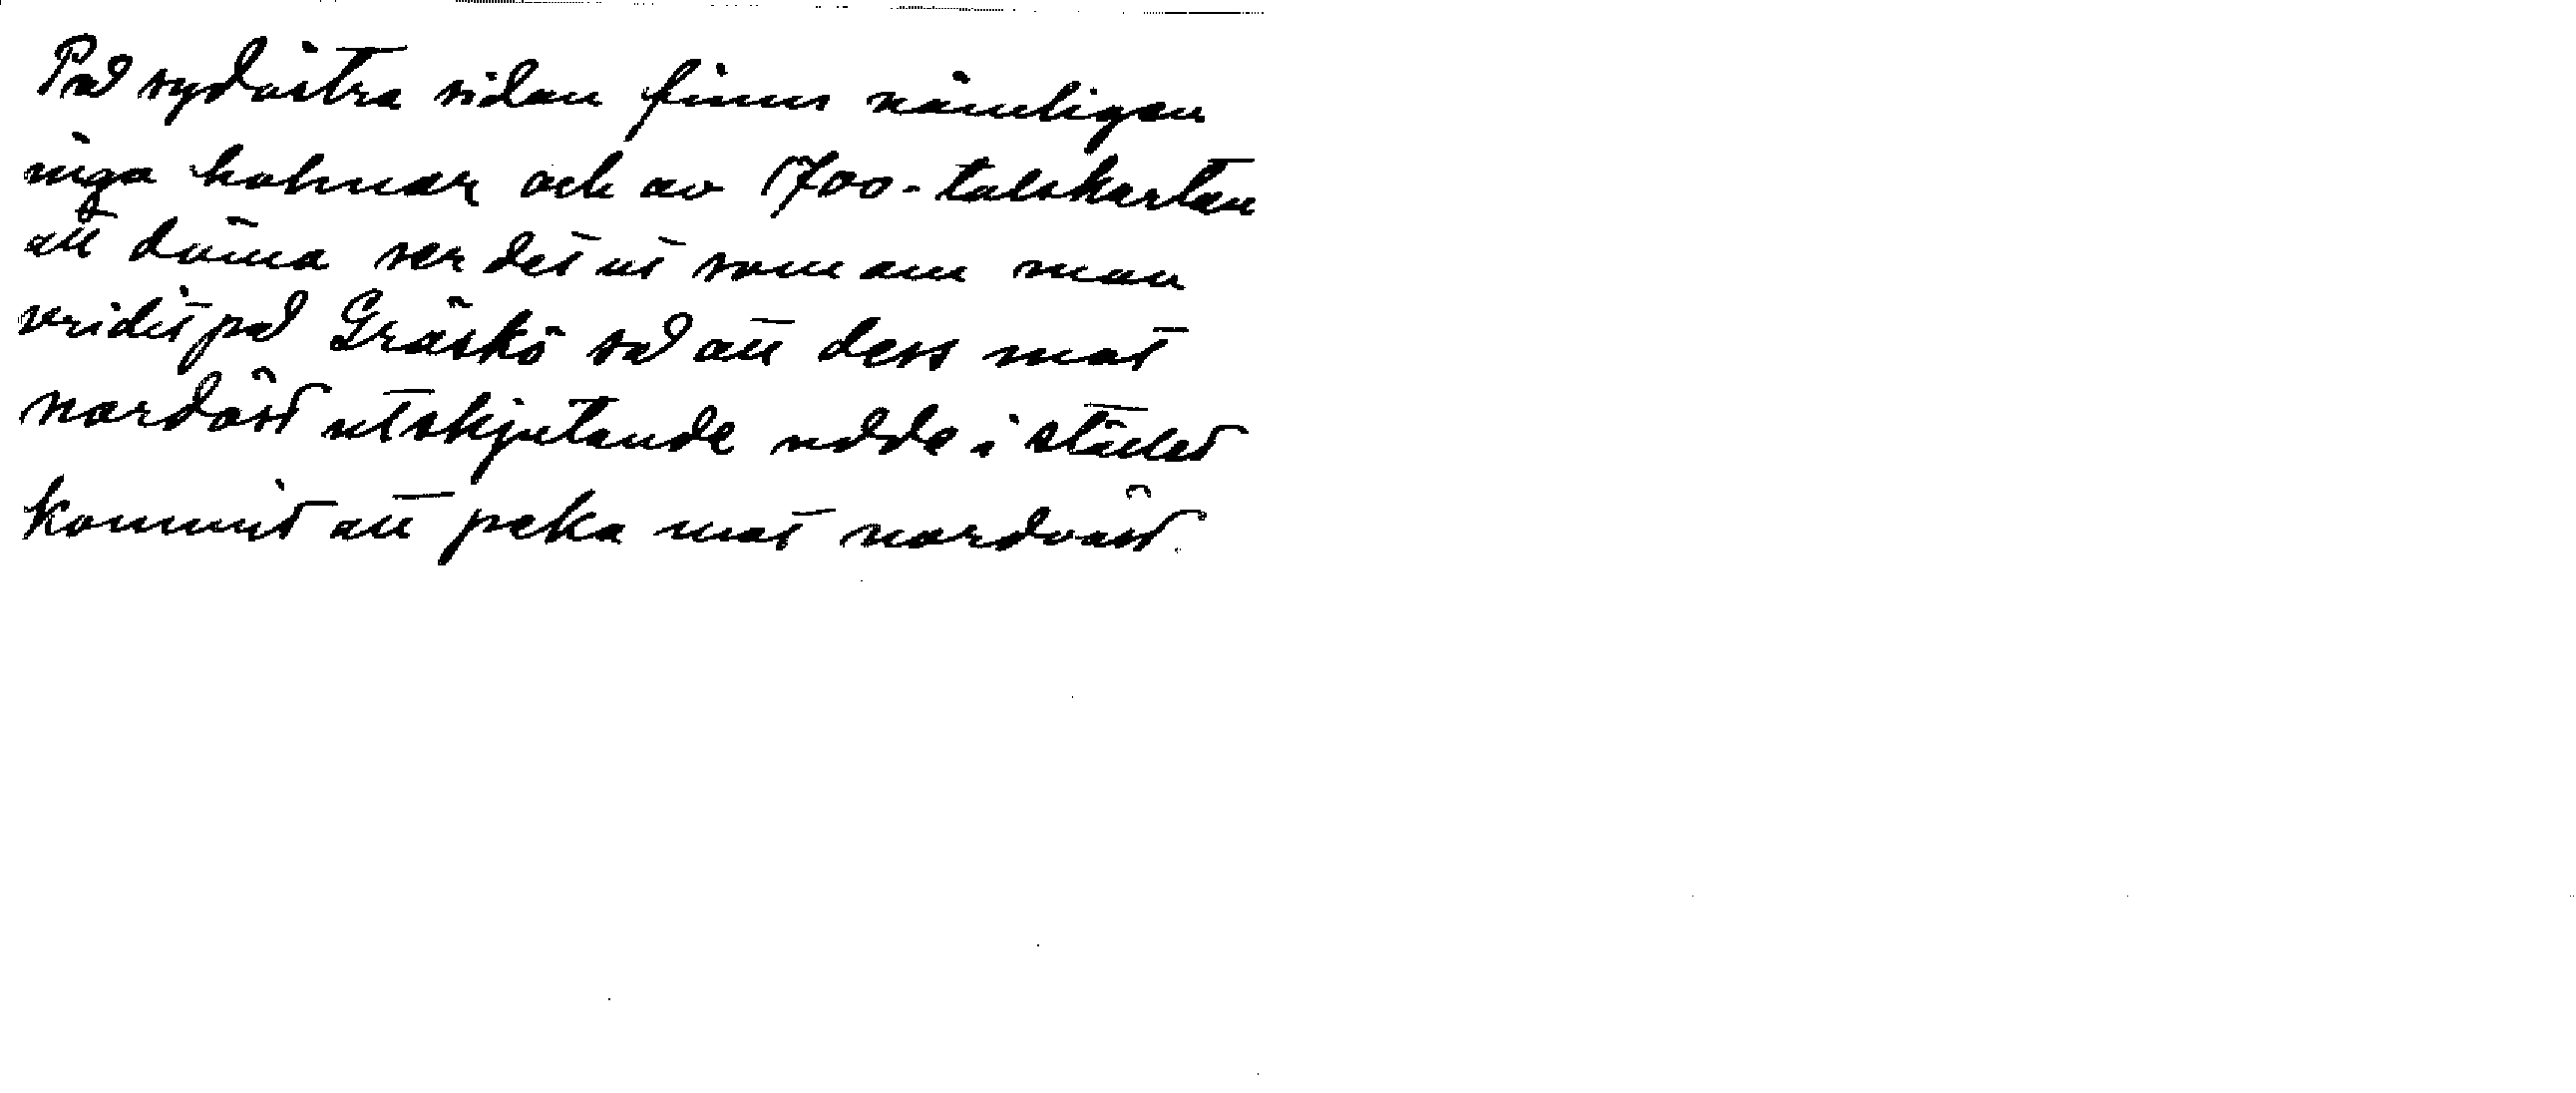 På sydöstra sidan finns nämligen
inga holmar och av 1700-talskartan
att döma ser det ut som om man
vridit på Gräskö så att dess mot
nordöst utskjutande udde i stället
kommit att peka mot nordväst.